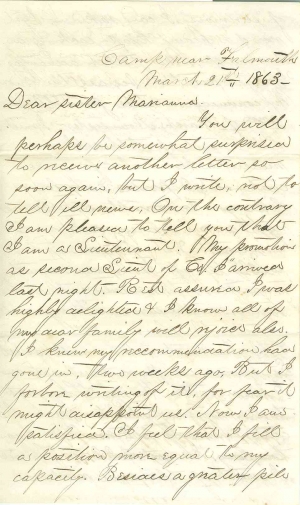 Camp near Falmouth
March 21st 1863-
Dear sister Marianna.
You will
perhaps be somewhat surprised
to receive another letter so
soon again, but I write, not to
tell ill news, On the contrary
I am pleased to tell you that
I am a Lieutenant. My promotion
as second Lieut of Co. arrived
last night. Rest assured I was
highly delighted & I know all of
my dear family will rejoice also.
I knew my recommendation had
gone in, two weeks ago, But I
forbore writing of it, for fear it
might disappoint us. Now I am
satisfied. I feel that I fill
a position more equal to my
capacity. Besides a greater